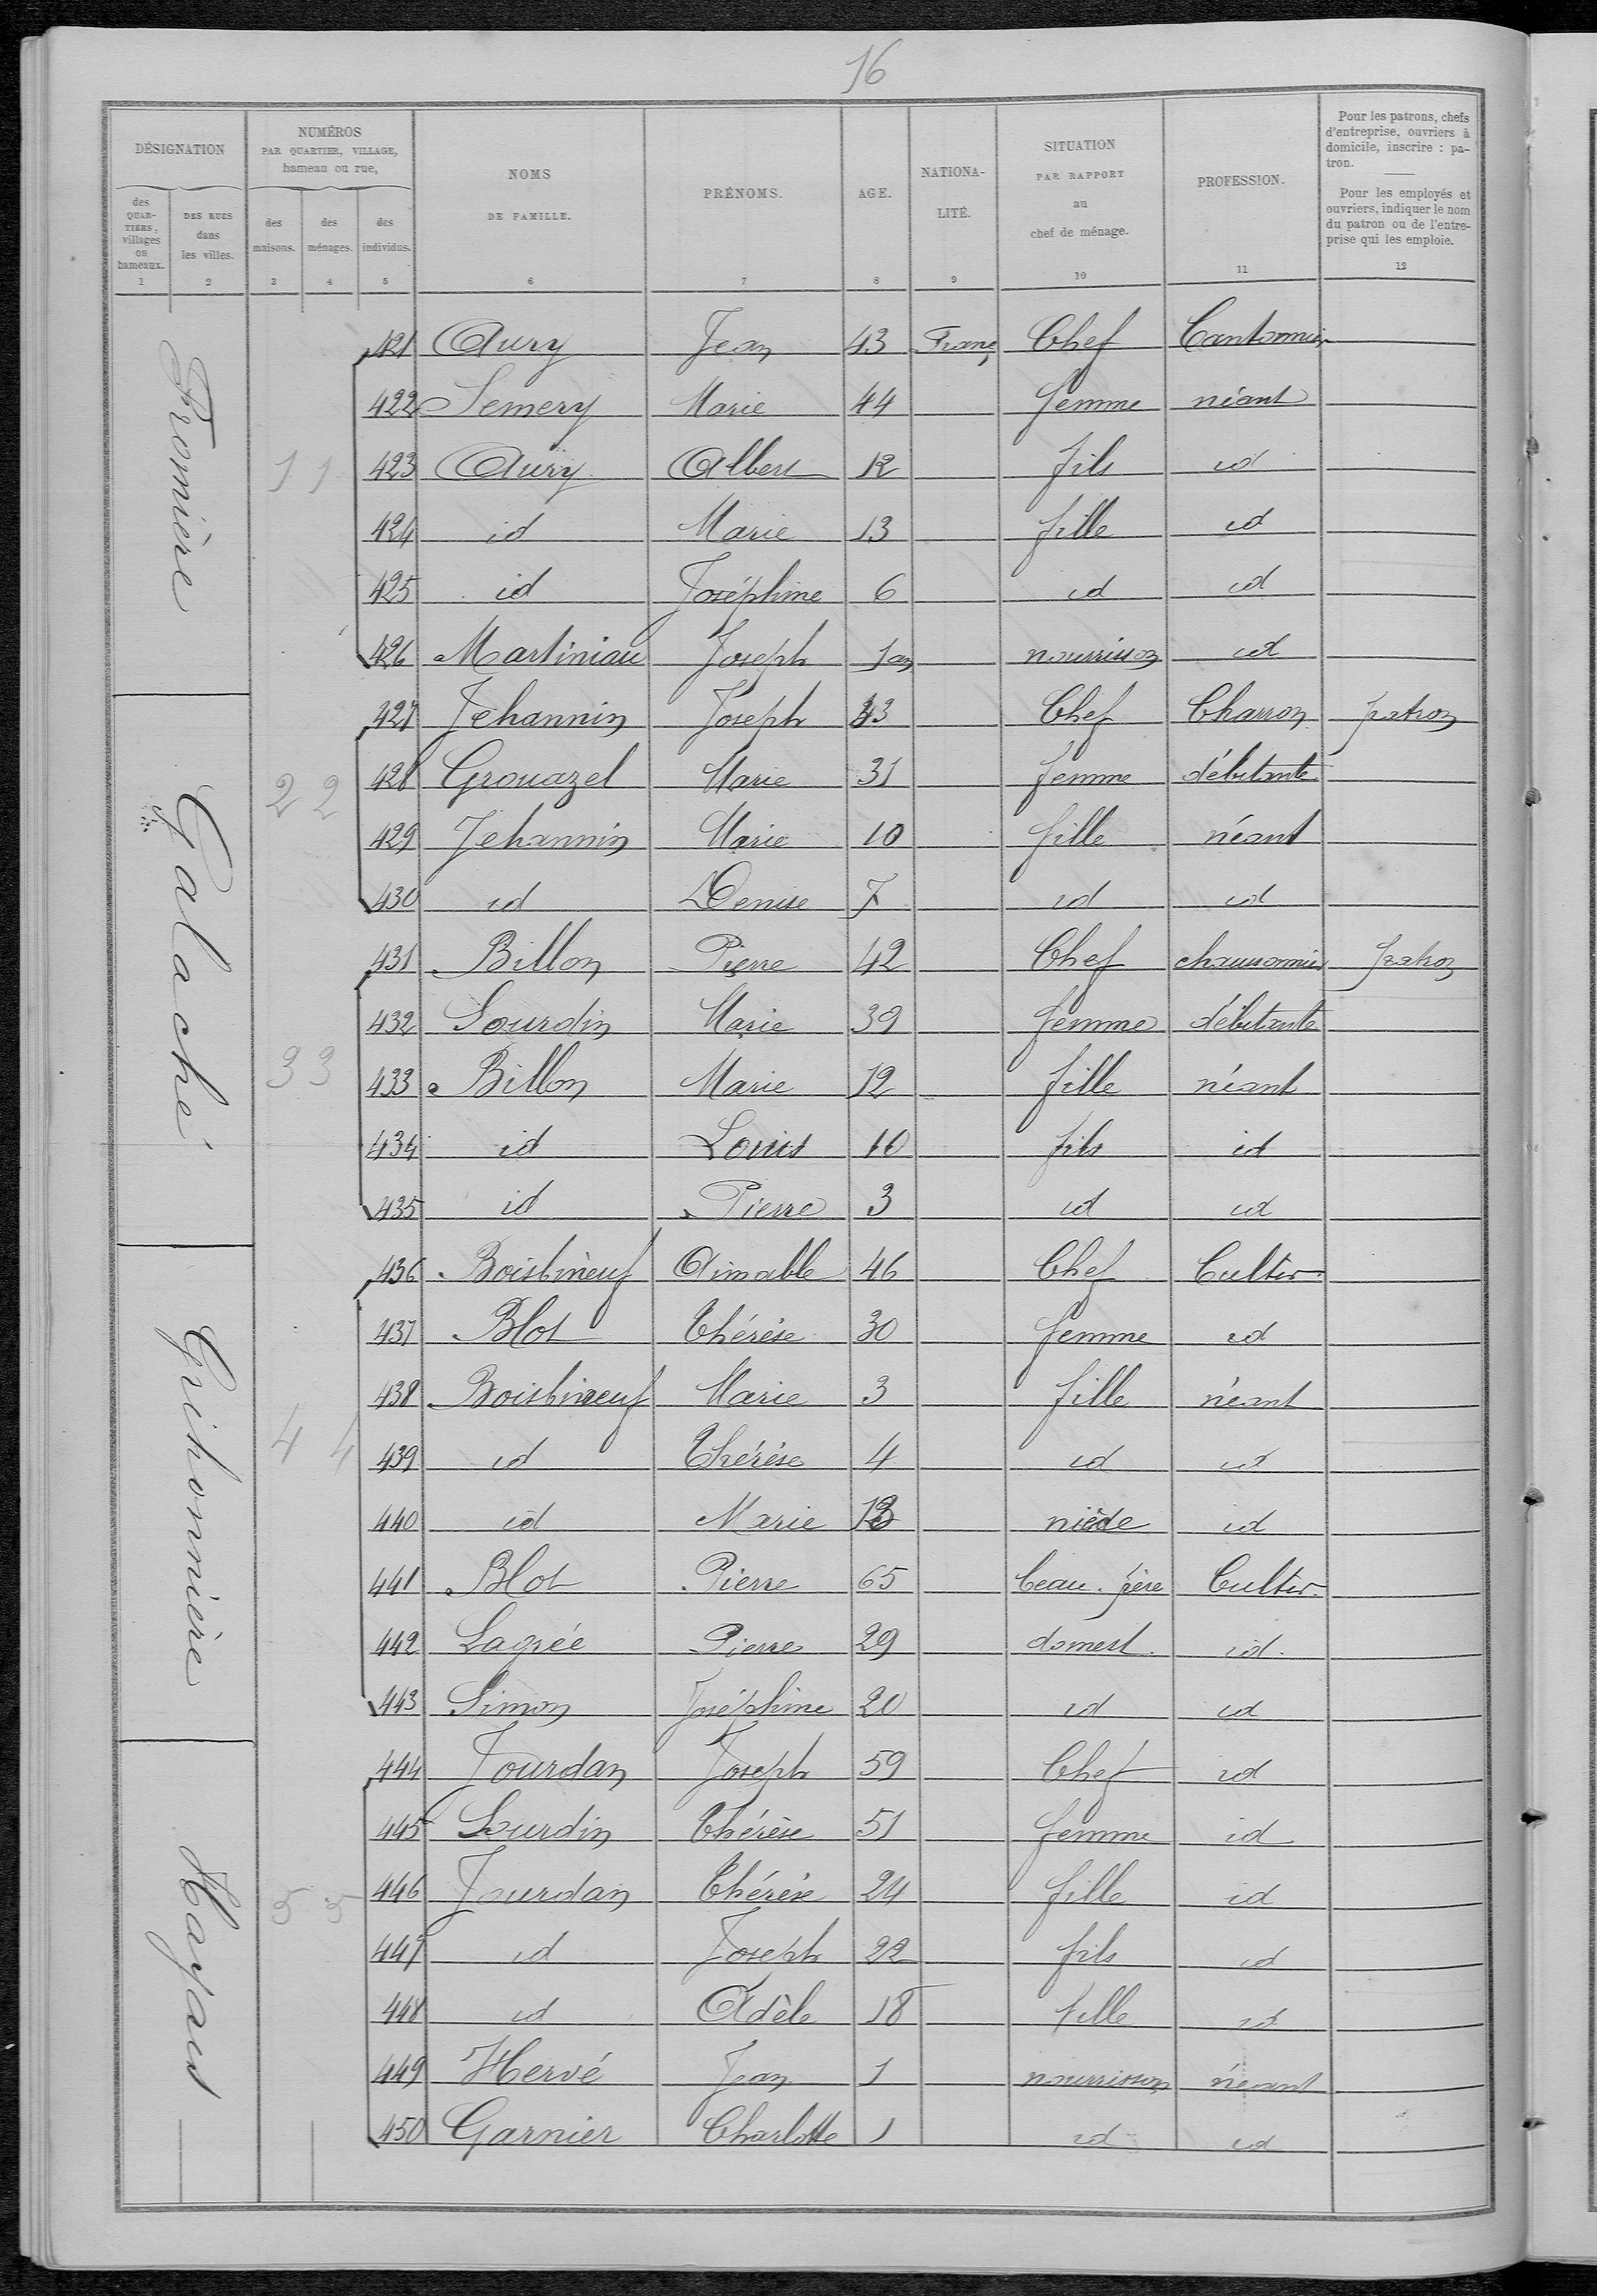 16
DÉSIGNATION
NUMÉROS
PAR QUARTIER, VILLAGE,
hameau ou rue,
NOMS
DE FAMILLE.
PRÉNOMS.
AGE.
NATIONA-
LITÉ.
SITUATION
PAR RAPPORT
au
chef de ménage.
PROFESSION.
Pour les patrons, chefs
d'entreprise, ouvriers à
domicile, inscrire : pa-
tron.
Pour les employés et
ouvriers, indiquer le nom
du patron ou de l'entre-
prise qui les emploie.
des
QUAR-
TIERS,
villages
ou
hameaux.
DES RUES
dans
les villes.
des
maisons.
des
ménages.
des
individus.
1 2 3 4 5 6 7 8 9 10 11 12
Fromière
1 1
421 Aury Jean 43 Franç Chef Cantonnier
422 Semery Marie 44 femme néant
423 Aury Albert 12 fils id
424 id Marie 13 fille id
425 id Joséphine 6 id id
426 Martiniau Joseph 1 an nourrisson id
Galaché
2 2
427 Jehannin Joseph 43 Chef Charron patron
428 Grouazel Marie 31 femme débitante
429 Jehannin Marie 10 fille néant
430 id Denise 7 id id
3 3
431 Billon Pierre 42 Chef chaussonnier patron
432 Sourdin Marie 39 femme débitante
433 Billon Marie 12 fille néant
434 id Louis 10 fils id
435 id Pierre 3 id id
Grihonnière
4 4
436 Boisbineuf Aimable 46 Chef Cultivr
437 Blot Thérèse 30 femme id
438 Boisbineuf Marie 3 fille néant
439 id Thérèse 4 id id
440 id Marie 13 nièce id
441 Blot Pierre 65 beau-père Cultivr
442 Lagrée Pierre 29 domest. id.
443 Simon Joséphine 20 id id
5 5
444 Jourdan Joseph 59 Chef id
445 Sourdin Thérèse 51 femme id
446 Jourdan Thérèse 24 fille id
447 id Joseph 22 fils id
448 id Adèle 18 fille id
449 Hervé Jean 1 nourrisson néant
450 Garnier Charlotte 1 id id